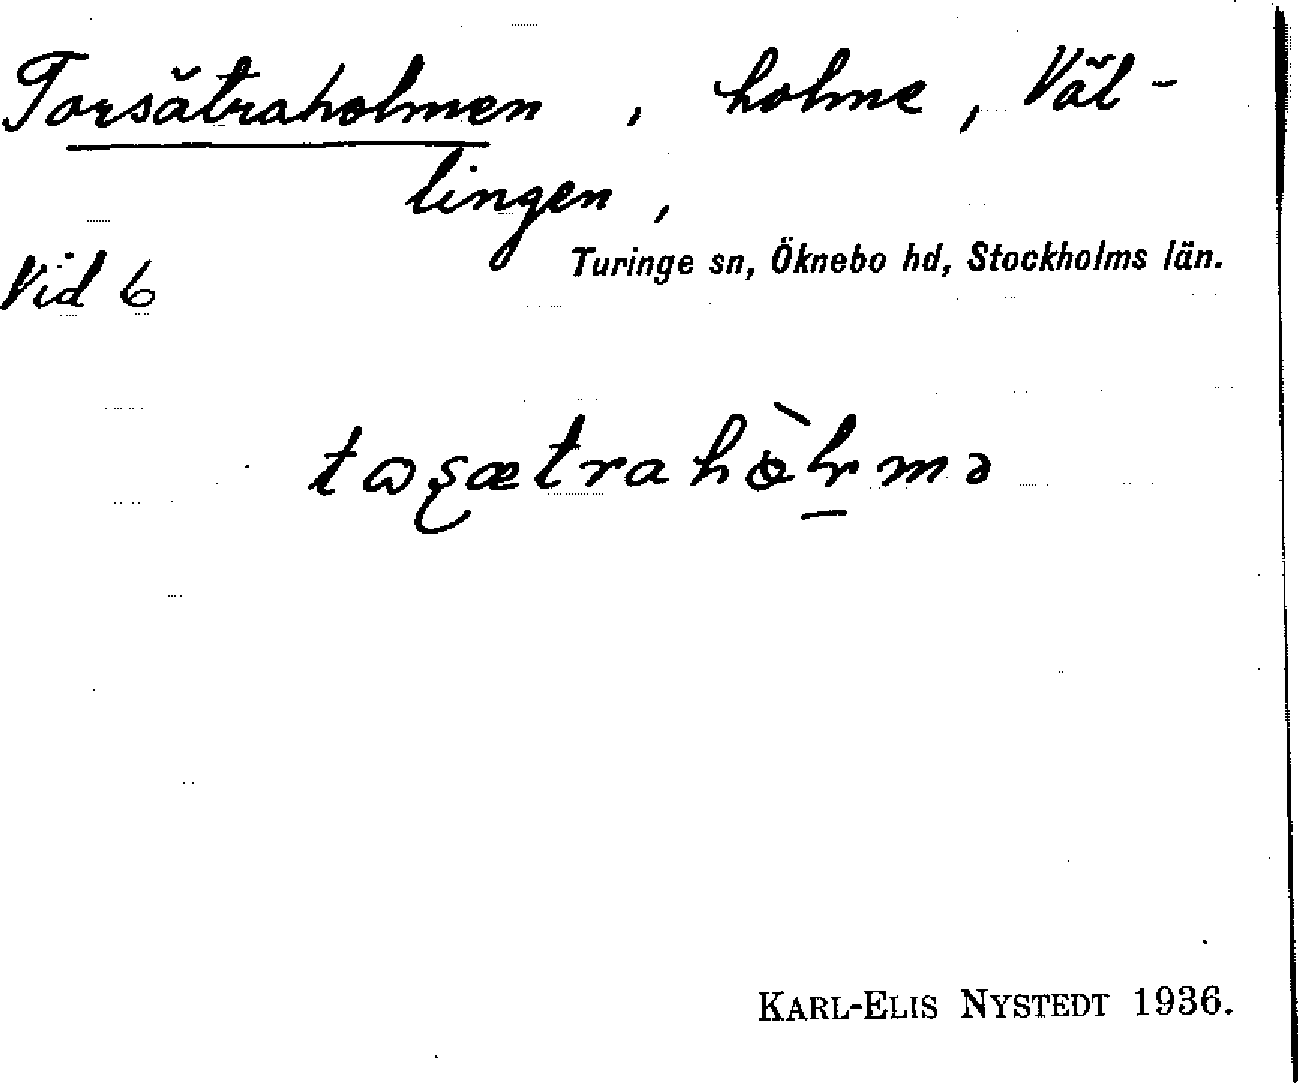 Torsätraholmen, holme, Väl-
lingen,
Turinge sn, Öknebo hd, Stockholms län.
Vid 6
KARL-ELIS NYSTEDT 1936.